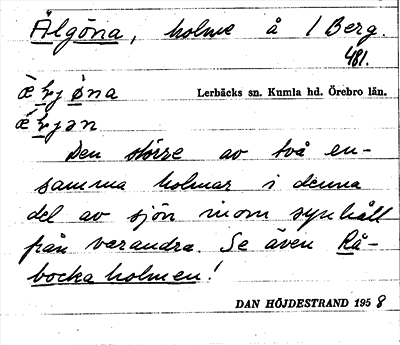 Älgöna, holme å 1 Berg.
481.
Lerbäcks sn. Kumla hd. Örebro län.
Den större av två en-
samma holmar i denna
del av sjön inom synhåll
från varandra. Se även Rå-
bocka holmen!
DAN HÖJDESTRAND 1958